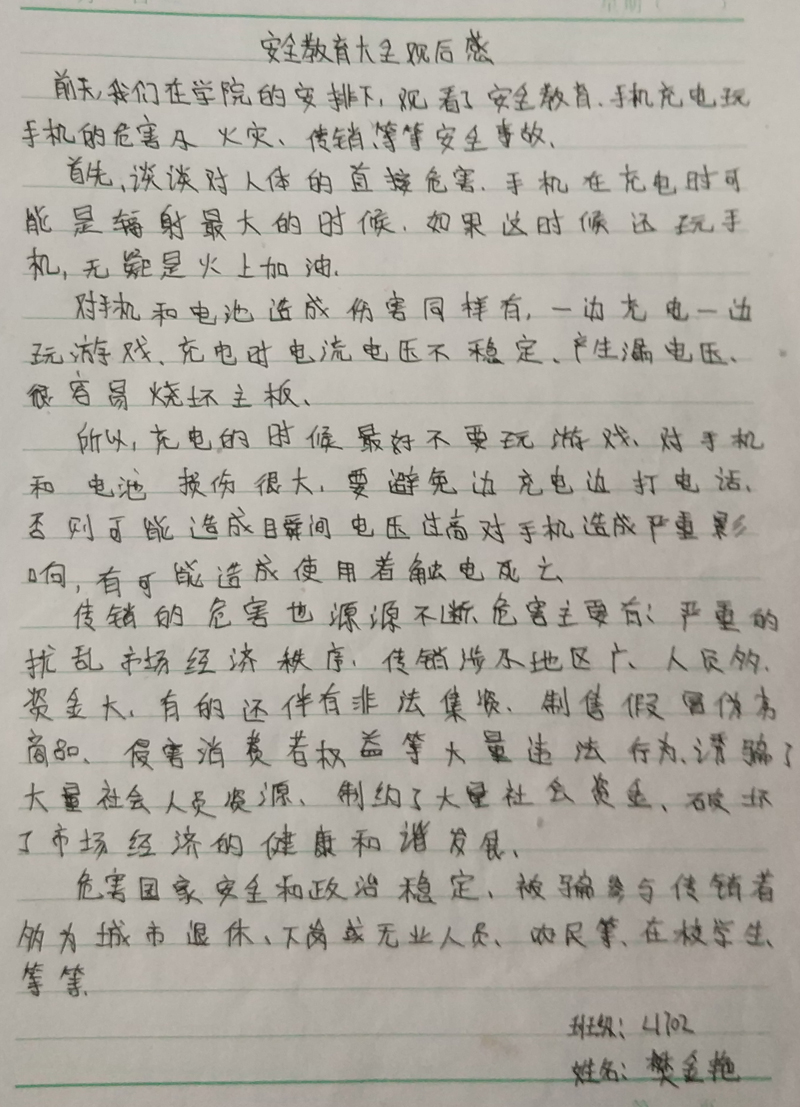 安全教育大全观后感
前天,我们在学院的安排下,观看了安全教育.手机充电玩
手机的危害及火灾、传销,等等安全事故、
首先,谈谈对人体的直接危害.手机在充电时可
能是辐射最大的时候.如果这时候还玩手
机,无疑是火上加油.
对手机和电池造成伤害同样有,一边充电一边
玩游戏、充电时电流电压不稳定、产生漏电压、
很容易烧坏主板、
所以,充电的时候最好不要玩游戏、对手机
和电池损伤很大,要避免边充电边打电话、
否则可能造成瞬间电压过高对手机造成严重影
响,有可能造成使用者触电死亡、
传销的危害也源源不断、危害主要有:严重的
扰乱市场经济秩序.传销涉及地区广、人员多、
资金大、有的还伴有非法集资、制售假冒伪劣
商品、侵害消费者权益等大量违法行为、诱骗了
大量社会人员资源、制约了大量社会资金、破坏
了市场经济的健康和谐发展、
危害国家安全和政治稳定、被骗参与传销者
多为城市退休、下岗或无业人员、农民等、在校学生、
等等.
班级:41702
姓名:樊金艳